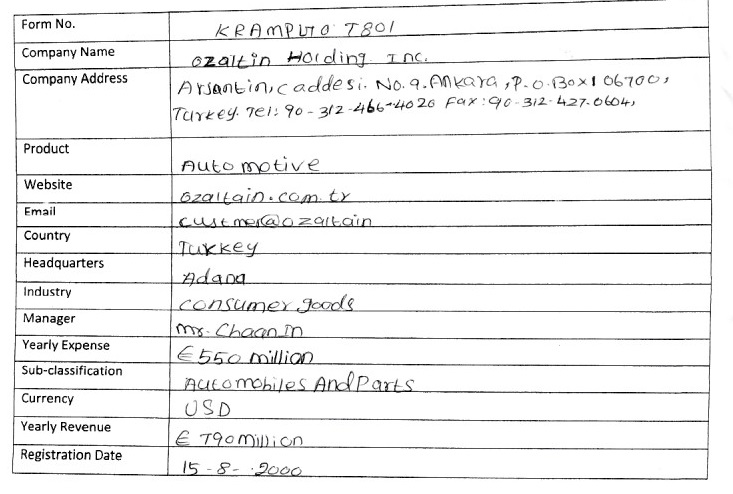 Form No. KRAMPUTO T801
Company Name Ozaltin Holding Inc.
Company Address Arsantin, caddesi. No. 9. Ankara, P.O. Box 1 06700,
Turkey. Tel: 90-312-466-4020 Fax: 90-312-427-0604,
Product Automotive
Website ozaltain.com.tr
Email custmer@ozaltain
Country Turkey
Headquarters Adana
Industry consumer goods
Manager Mr. Chaan In
Yearly Expense €550 million
Sub-classification Automobiles And Parts
Currency USD
Yearly Revenue € 790 million
Registration Date 15-8-2000